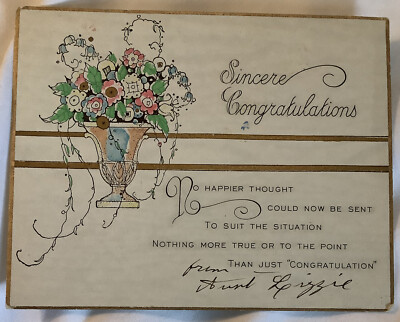 Sincere
Congratulations
No happier thought
could now be sent
To suit the situation
Nothing more true or to the point
Than just "Congratulation"
from
Aunt Lizzie